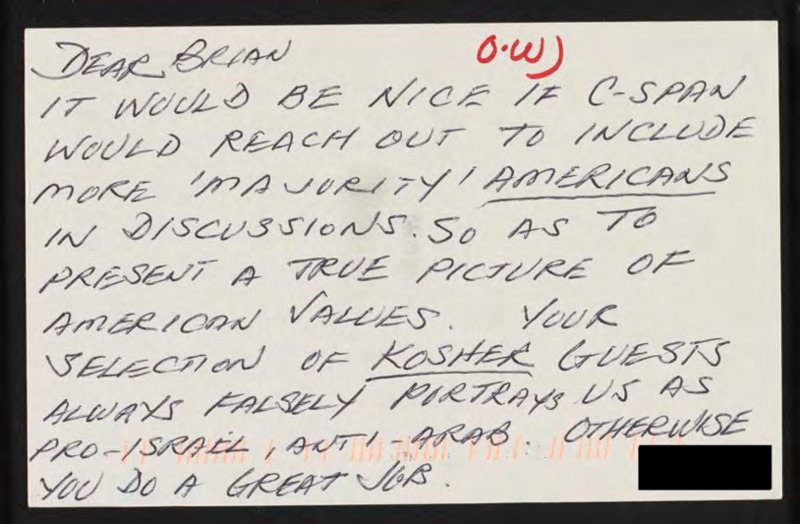 DEAR BRIAN O.W)
IT WOULD BE NICE IF C-SPAN
WOULD REACH OUT TO INCLUDE
MORE 'MAJORITY' AMERICANS
IN DISCUSSIONS. SO AS TO
PRESENT A TRUE PICTURE OF
AMERICAN VALUES. YOUR
SELECTION OF KOSHER GUESTS
ALWAYS FALSELY PORTRAYS US AS
PRO-ISRAEL, ANTI-ARAB. OTHERWISE
YOU DO A GREAT JOB.